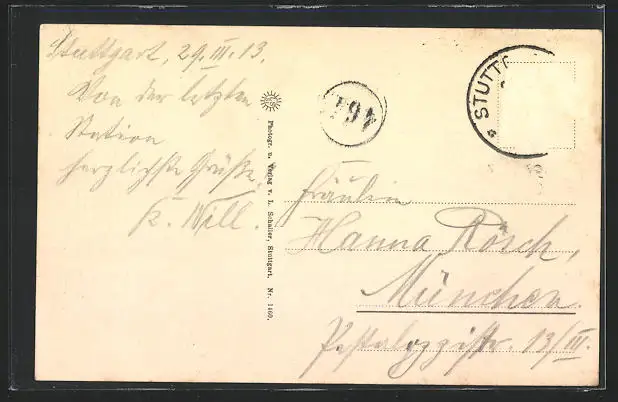 Stuttgart, 29.III.13.
Von der letzten
Station
herzlichste Grüße.
K. Will.
Photogr. u. Verlag v. L. Schaller, Stuttgart. Nr. 1460.
STUTTG
Fräulein
Hanna Rösch,
München.
Pestalozzistr. 13/III.